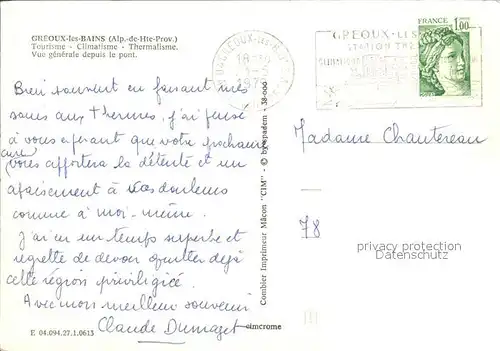 GRÉOUX-les-BAINS (Alp.-de-Hte-Prov.)
Tourisme - Climatisme - Thermalisme.
Vue générale depuis le pont.
Bien souvent en faisant mes
soins aux thermes, j'ai pensé
à vous espérant que votre prochaine
cure vous apportera la détente et un
apaisement à vos douleurs
comme à moi-même.
J'ai eu un temps superbe et
regrette de devoir quitter déjà
cette région privilégiée.
Avec mon meilleur souvenir
Claude Dumazet
E 04.094.27.1.0613
cimcrome
Combier Imprimeur Mâcon "CIM" - © by spadem - 38 000
GREOUX-LES
STATION
FRANCE
1,00
Madame Chautereau
78
privacy protection
Datenschutz